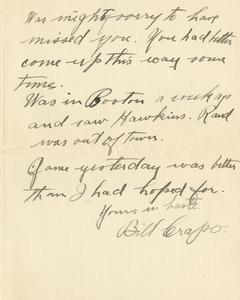 Was mighty sorry to have
missed you. You had better
come up this way some
time.
Was in Boston a week ago
and saw Hawkins. Rand
was out of town.
Game yesterday was better
than I had hoped for.
Yours in haste.
Bill Crapo.